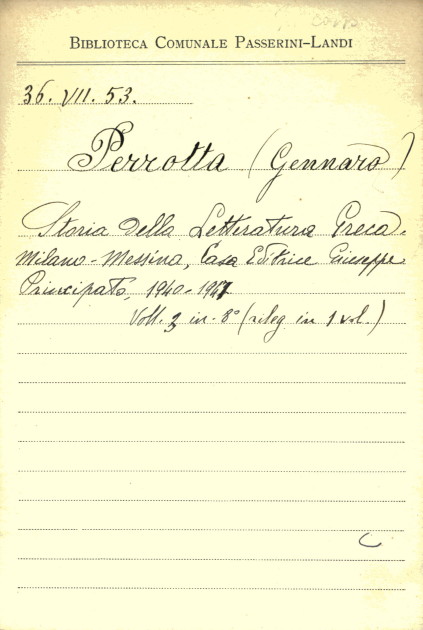 BIBLIOTECA COMUNALE PASSERINI-LANDI
36. VII. 53.
Perrotta (Gennaro)
Storia della Letteratura Greca.
Milano-Messina, Casa Editrice Giuseppe
Principato, 1940-1941
Voll. 3 in-8° (rileg in 1 vol.)
C